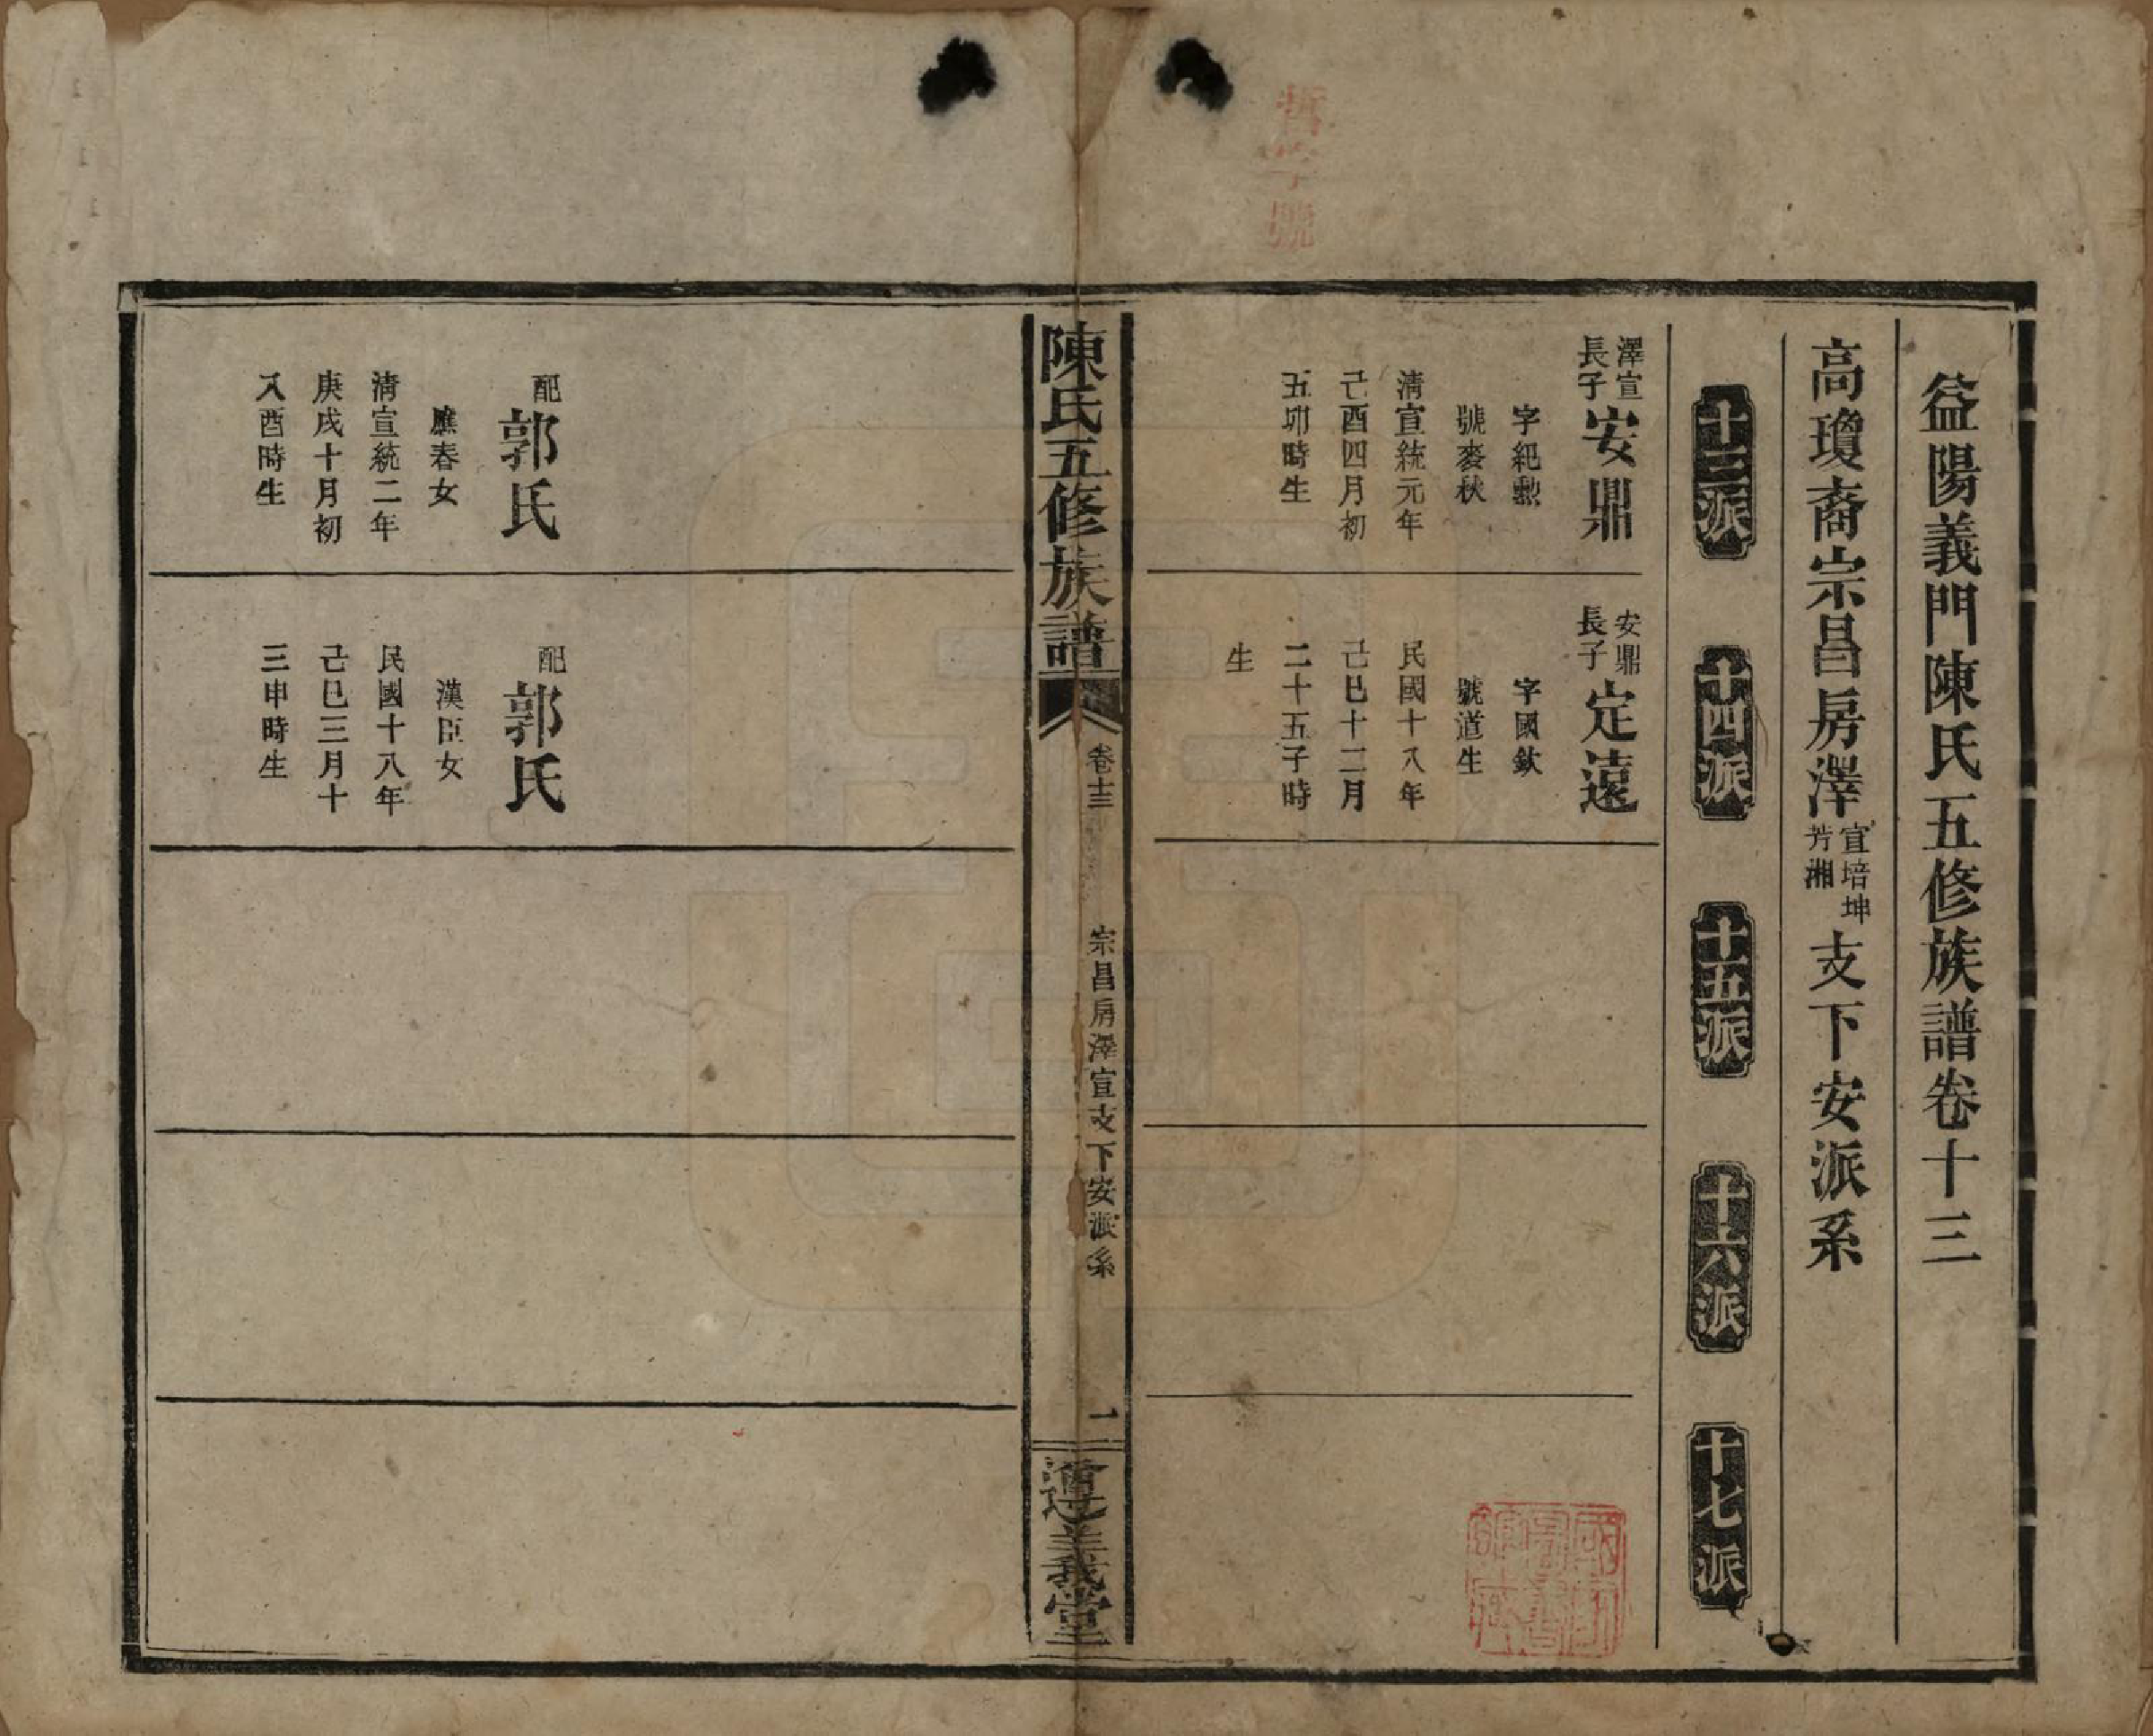 益陽義門陳氏五修族譜卷十三
高瓊裔宗昌房澤宣培坤芳湘支下安派系
十三派
十四派
十五派
十六派
十七派
澤宣
長子
安鼎
字紀勲
號麥秋
清宣統元年
己酉四月初
五卯時生
安鼎
長子
定遠
字國欽
號道生
民國十八年
己巳十二月
二十五子時
生
陳氏五修族譜
卷十三
宗昌房澤宣支下安派系
一
遵義堂
配
郭氏
應春女
清宣統二年
庚戌十月初
八酉時生
配
郭氏
漢臣女
民國十八年
己巳三月十
三申時生
字號